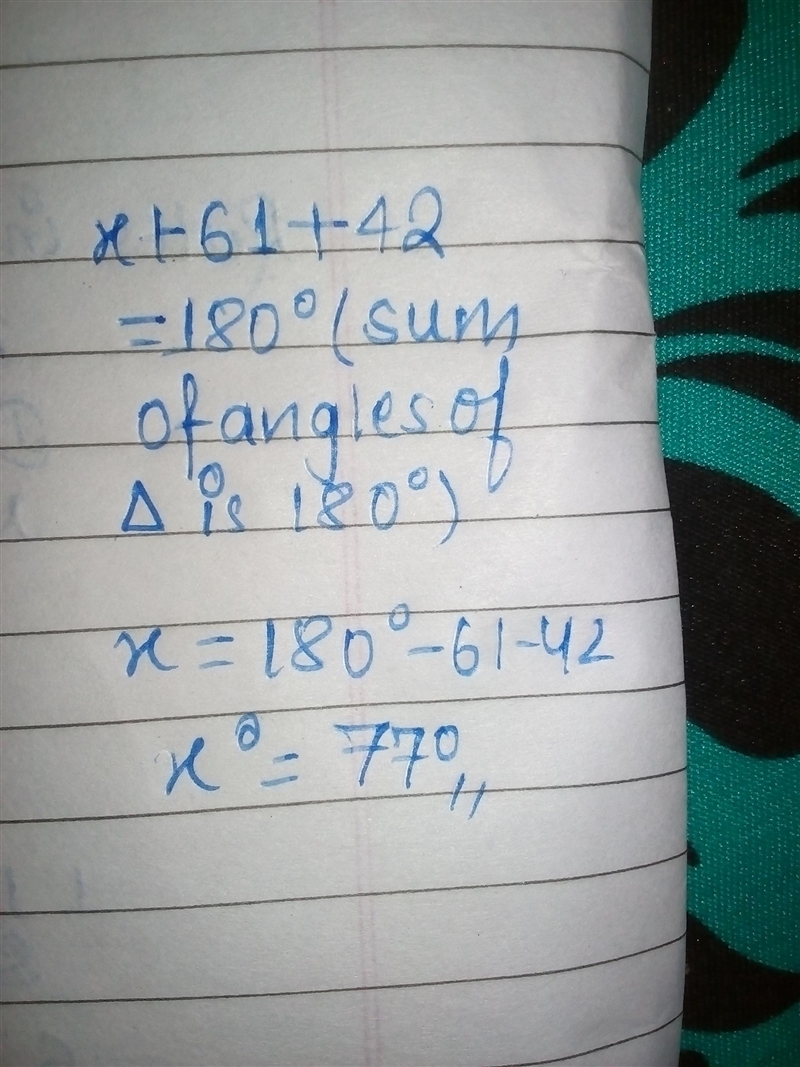 x+61+42
=180° (sum
of angles of
Δ is 180°)
x = 180° - 61 - 42
x° = 77°,,